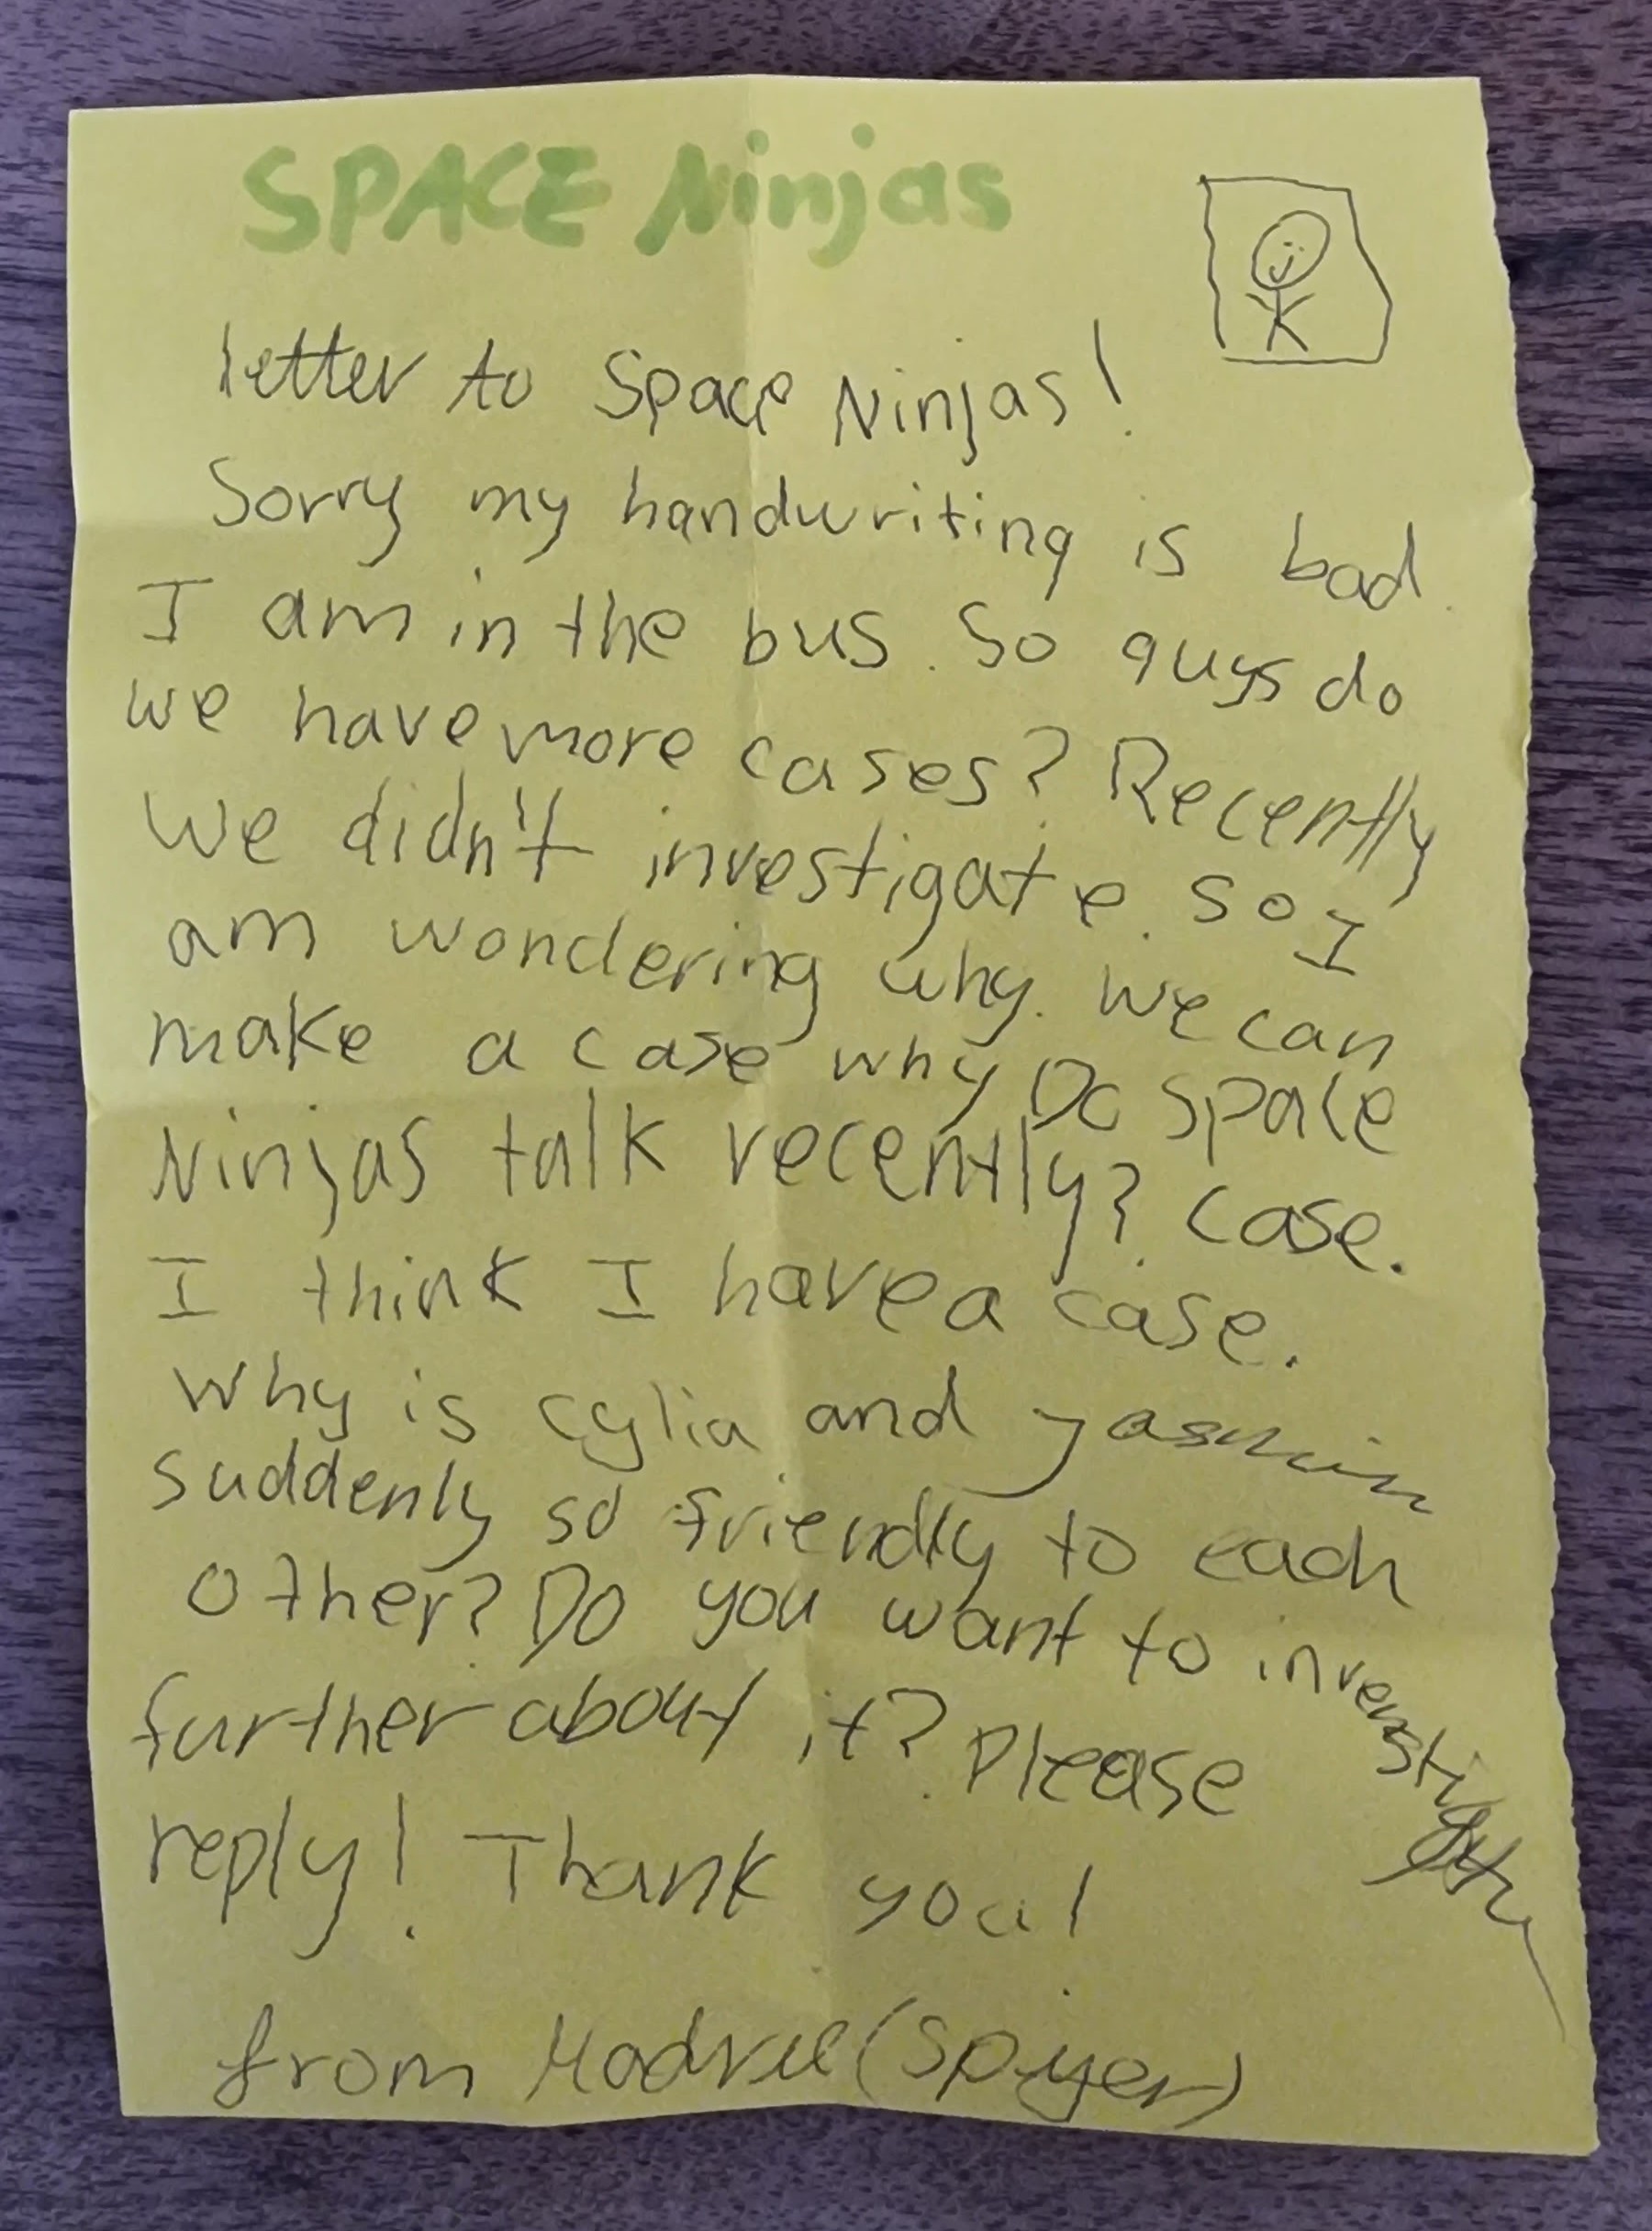 SPACE Ninjas
letter to Space Ninjas!
Sorry my handwriting is bad.
I am in the bus. So guys do
we have more cases? Recently
we didn't investigate. so I
am wondering why. we can
make a case why Do Space
Ninjas talk recently? case.
I think I have a case.
Why is cylia and yasmin
suddenly so friendly to each
other? Do you want to
further about it? Please
reply! Thank you!
from (spyer)